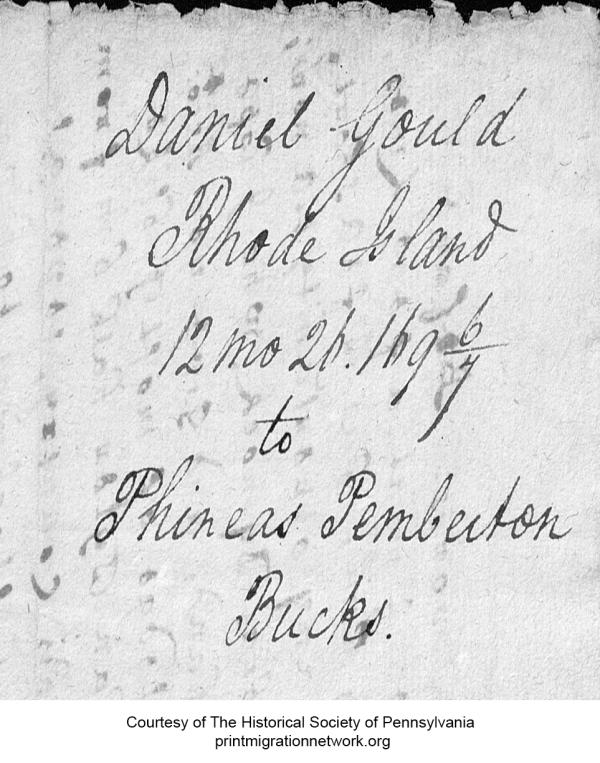 Daniel Gould
Rhode Island
12 mo 26. 169 6/7
to
Phineas Pemberton
Bucks.
Courtesy of The Historical Society of Pennsylvania
printmigrationnetwork.org